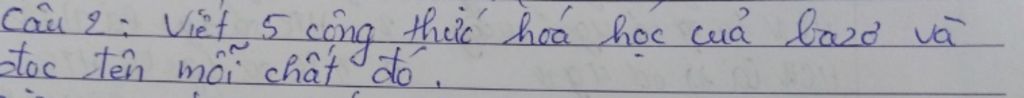 Câu 2: Viết 5 công thức hoá học cuả bazơ và
đọc tên mỗi chất đó.